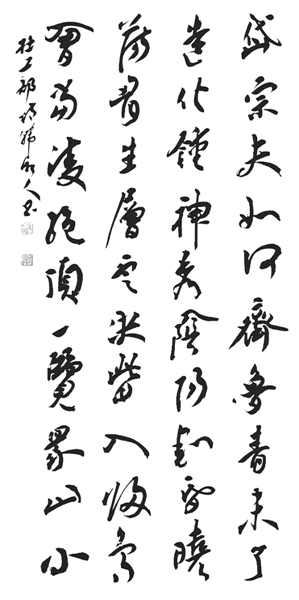 岱宗夫如何齊魯青未了
造化鍾神秀陰陽割昏曉
蕩胸生層雲決眥入歸鳥
會當凌絕頂一覽眾山小
杜工部詩 人書